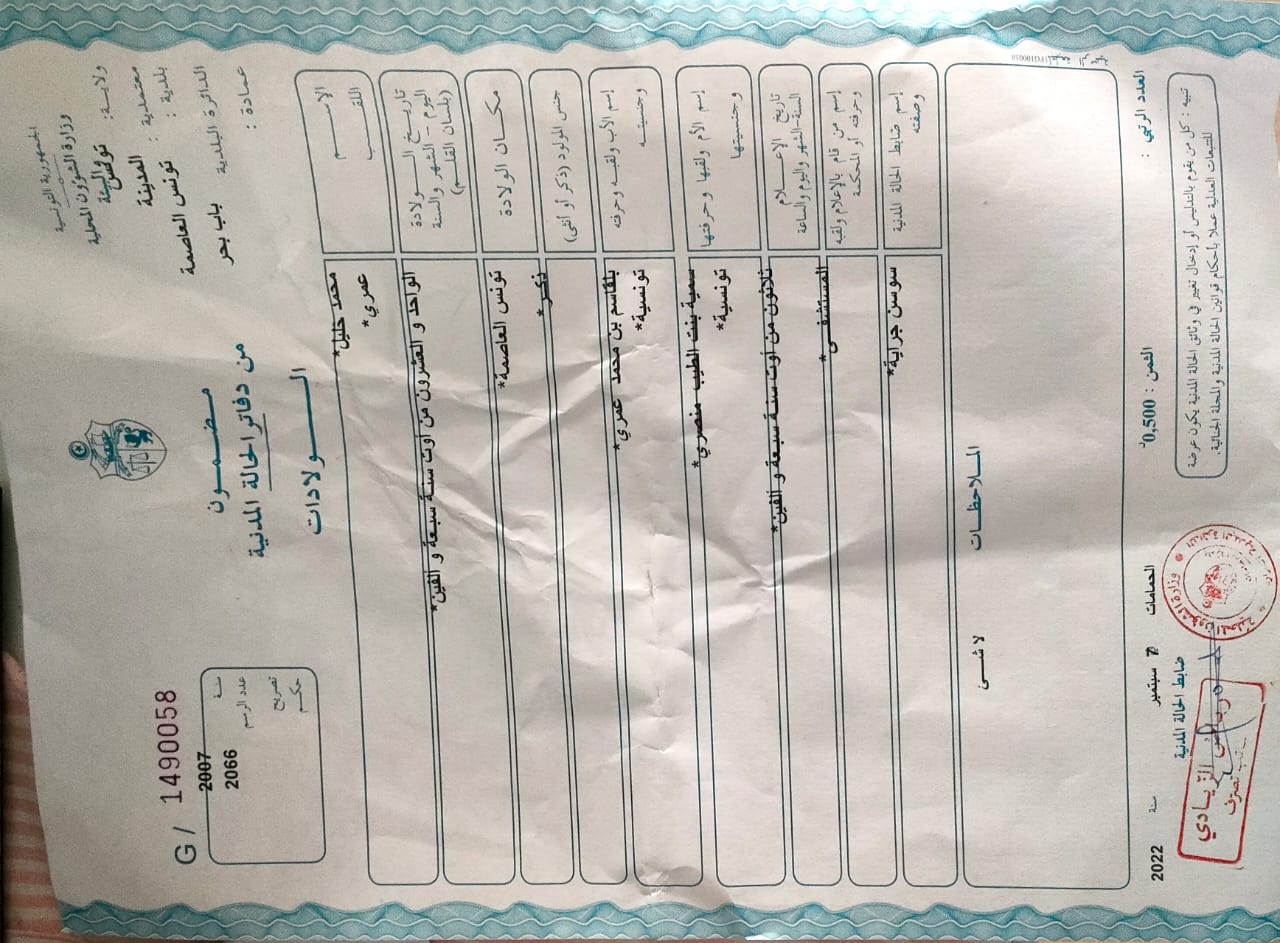 الجمهورية التونسية
وزارة الشؤون المحلية
والبيئة
ولاية: تونس
معتمدية: المدينة
بلدية: تونس العاصمة
الدائرة البلدية باب بحر
عمادة:
مضمون
من دفاتر الحالة المدنية
الولادات
G / 1490058
2007 سنة
2066 عدد الرسم
تصريح
حكم
الاسم محمد خليل*
اللقب عمري*
تاريخ الولادة الواحد و العشرون من أوت سنة سبعة و ألفين*
اليوم - الشهر والسنة
(بلسان القلم)
مكان الولادة تونس العاصمة*
جنس المولود (ذكر أو أنثى) ذكر*
إسم الأب ولقبه وحرفته بلقاسم بن محمد عمري*
وجنسيته تونسية*
إسم الأم ولقبها وحرفتها سمية بنت الطيب منصري*
وجنسيتها تونسية*
تاريخ الإعلام ثلاثون من أوت سنة سبعة و ألفين*
السنة-الشهر واليوم والساعة
إسم من قام بالإعلام ولقبه المستشفى*
وحرفته أو المحكمة
إسم ضابط الحالة المدنية سوسن جراية*
وصفته
الملاحظات
لا شئ
العدد الرتبي :
الثمن : 0,500د
الحمامات
سبتمبر
سنة 2022
ضابط الحالة المدنية
الزيادي
تصرف
وزارة الشؤون المحلية
تنبيه : كل من يقوم بالتدليس أو إدخال تغيير في وثائق الحالة المدنية يكون عرضة
للتتبعات العدلية عملا بأحكام قوانين الحالة المدنية والمجلة الجنائية.